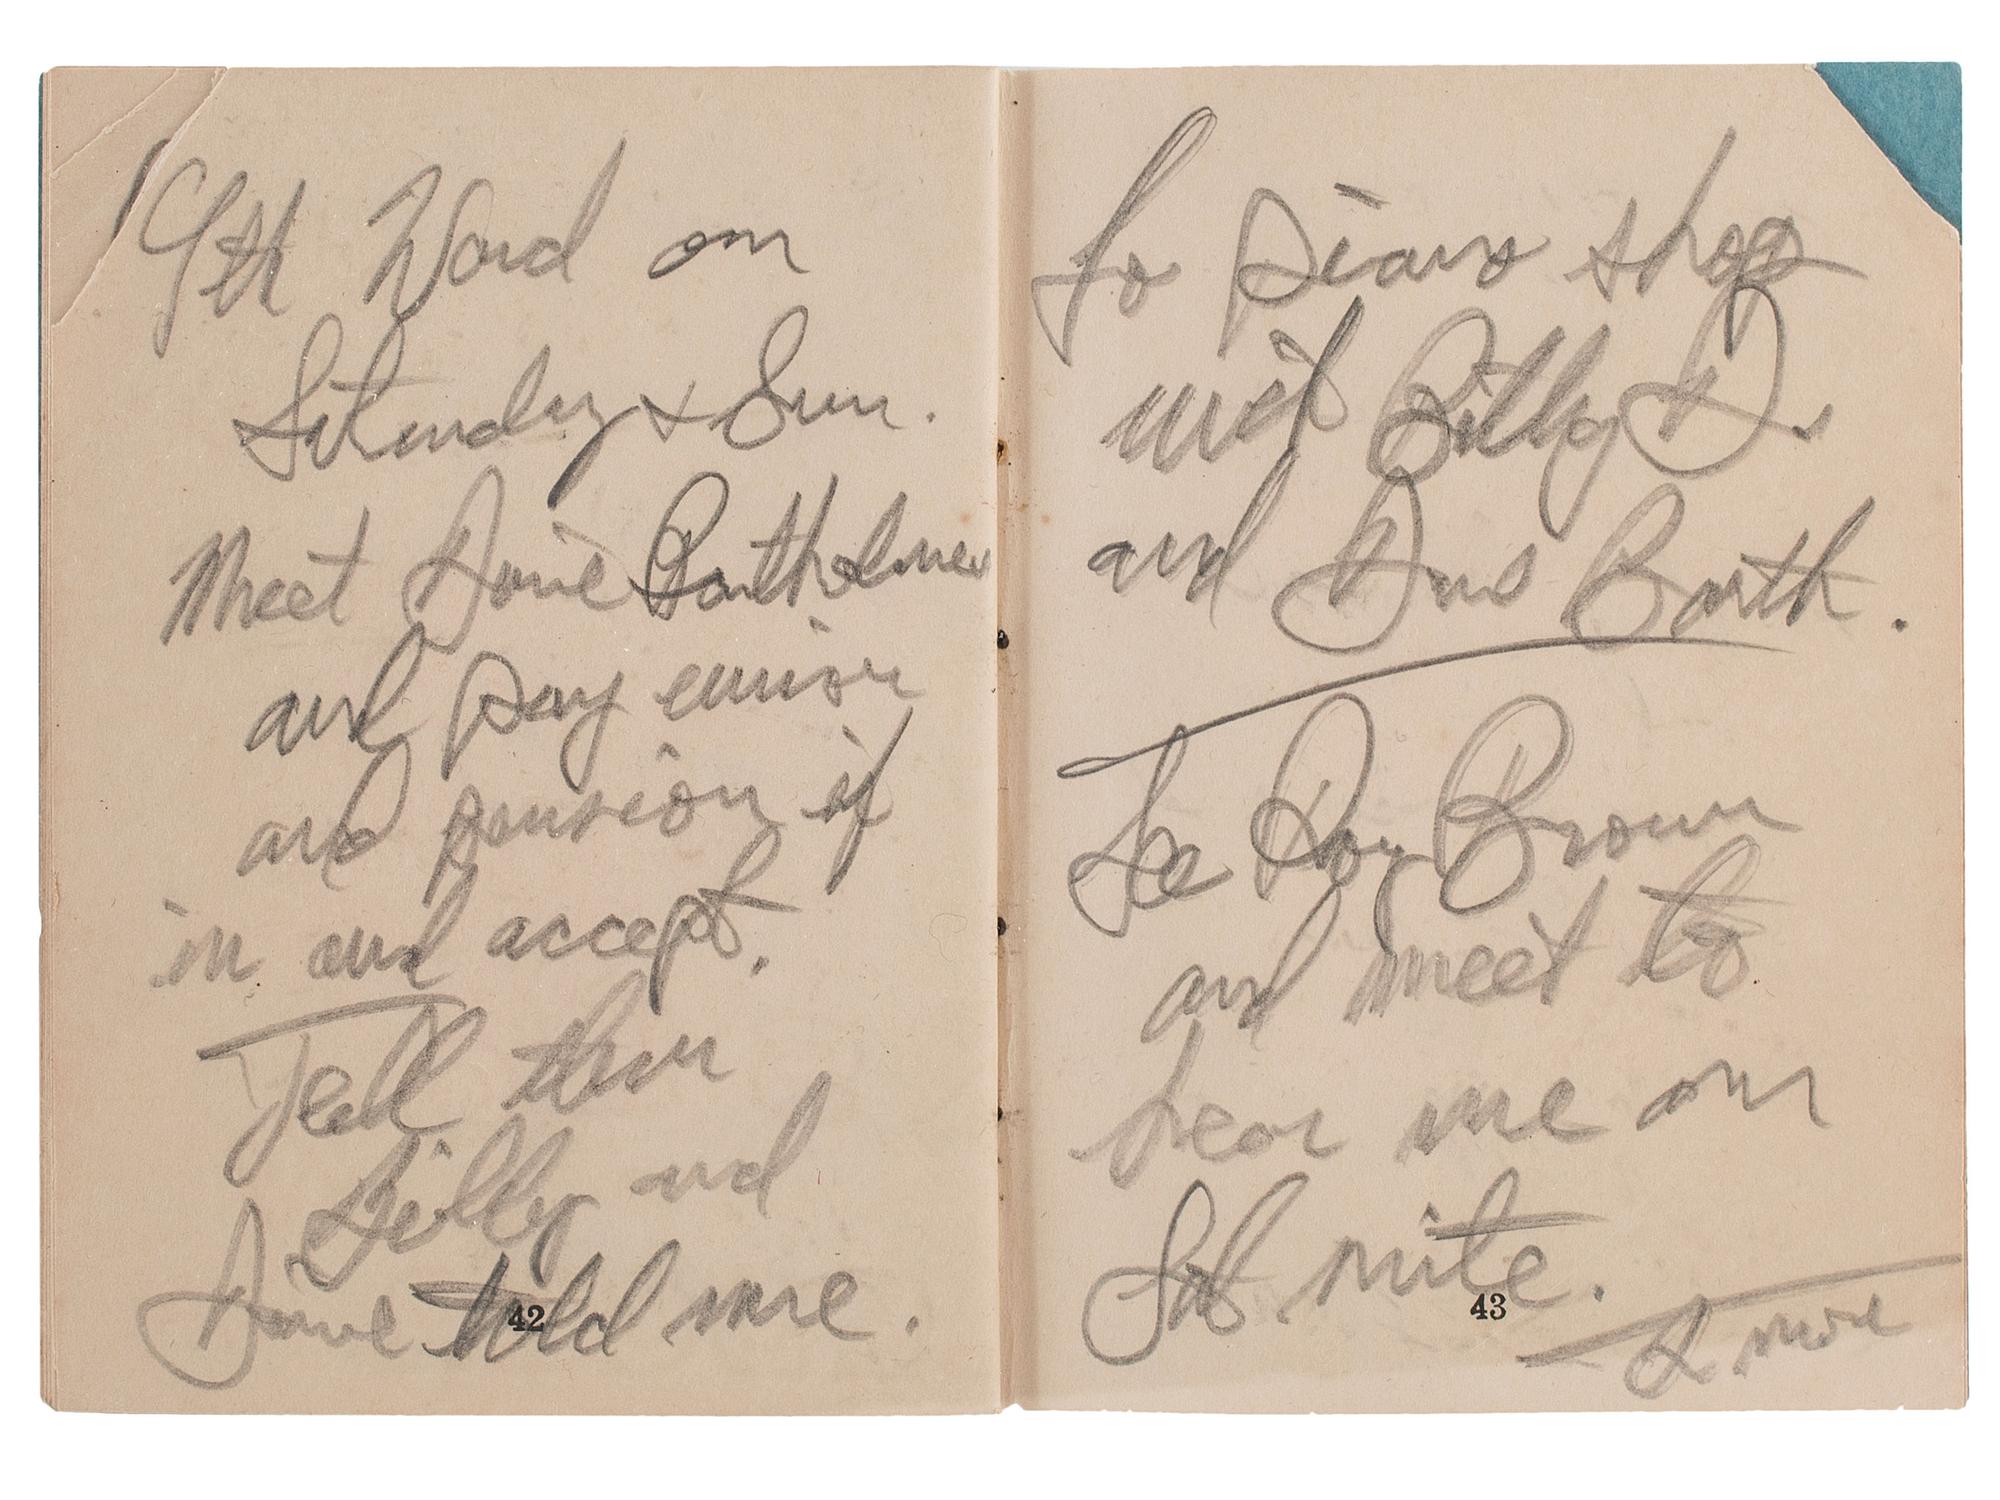 9th Ward on
Saturday & Sun.
Meet Dave Bartholmew
and pay
and pension if
in and accept.
Tell them
Billy and
Dave told me.
42
To piano shop
with Billy D.
and Dave Barth.
See Roy Brown
and meet to
hear me on
Sat nite.
& more
43